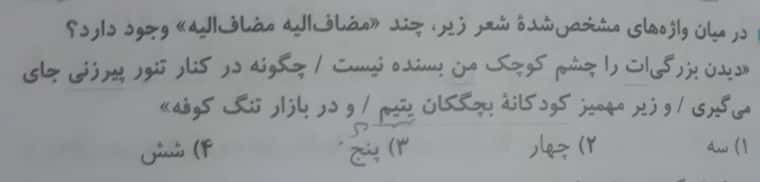 در میان واژه‌های مشخص‌شدهٔ شعر زیر، چند «مضاف‌الیه مضاف‌الیه» وجود دارد؟
«دیدن بزرگی‌ات را چشم کوچک من بسنده نیست / چگونه در کنار تنور پیرزنی جای
می‌گیری / و زیر مهمیز کودکانهٔ بچگکان یتیم / و در بازار تنگ کوفه»
۱) سه ۲) چهار ۳) پنج ۴) شش